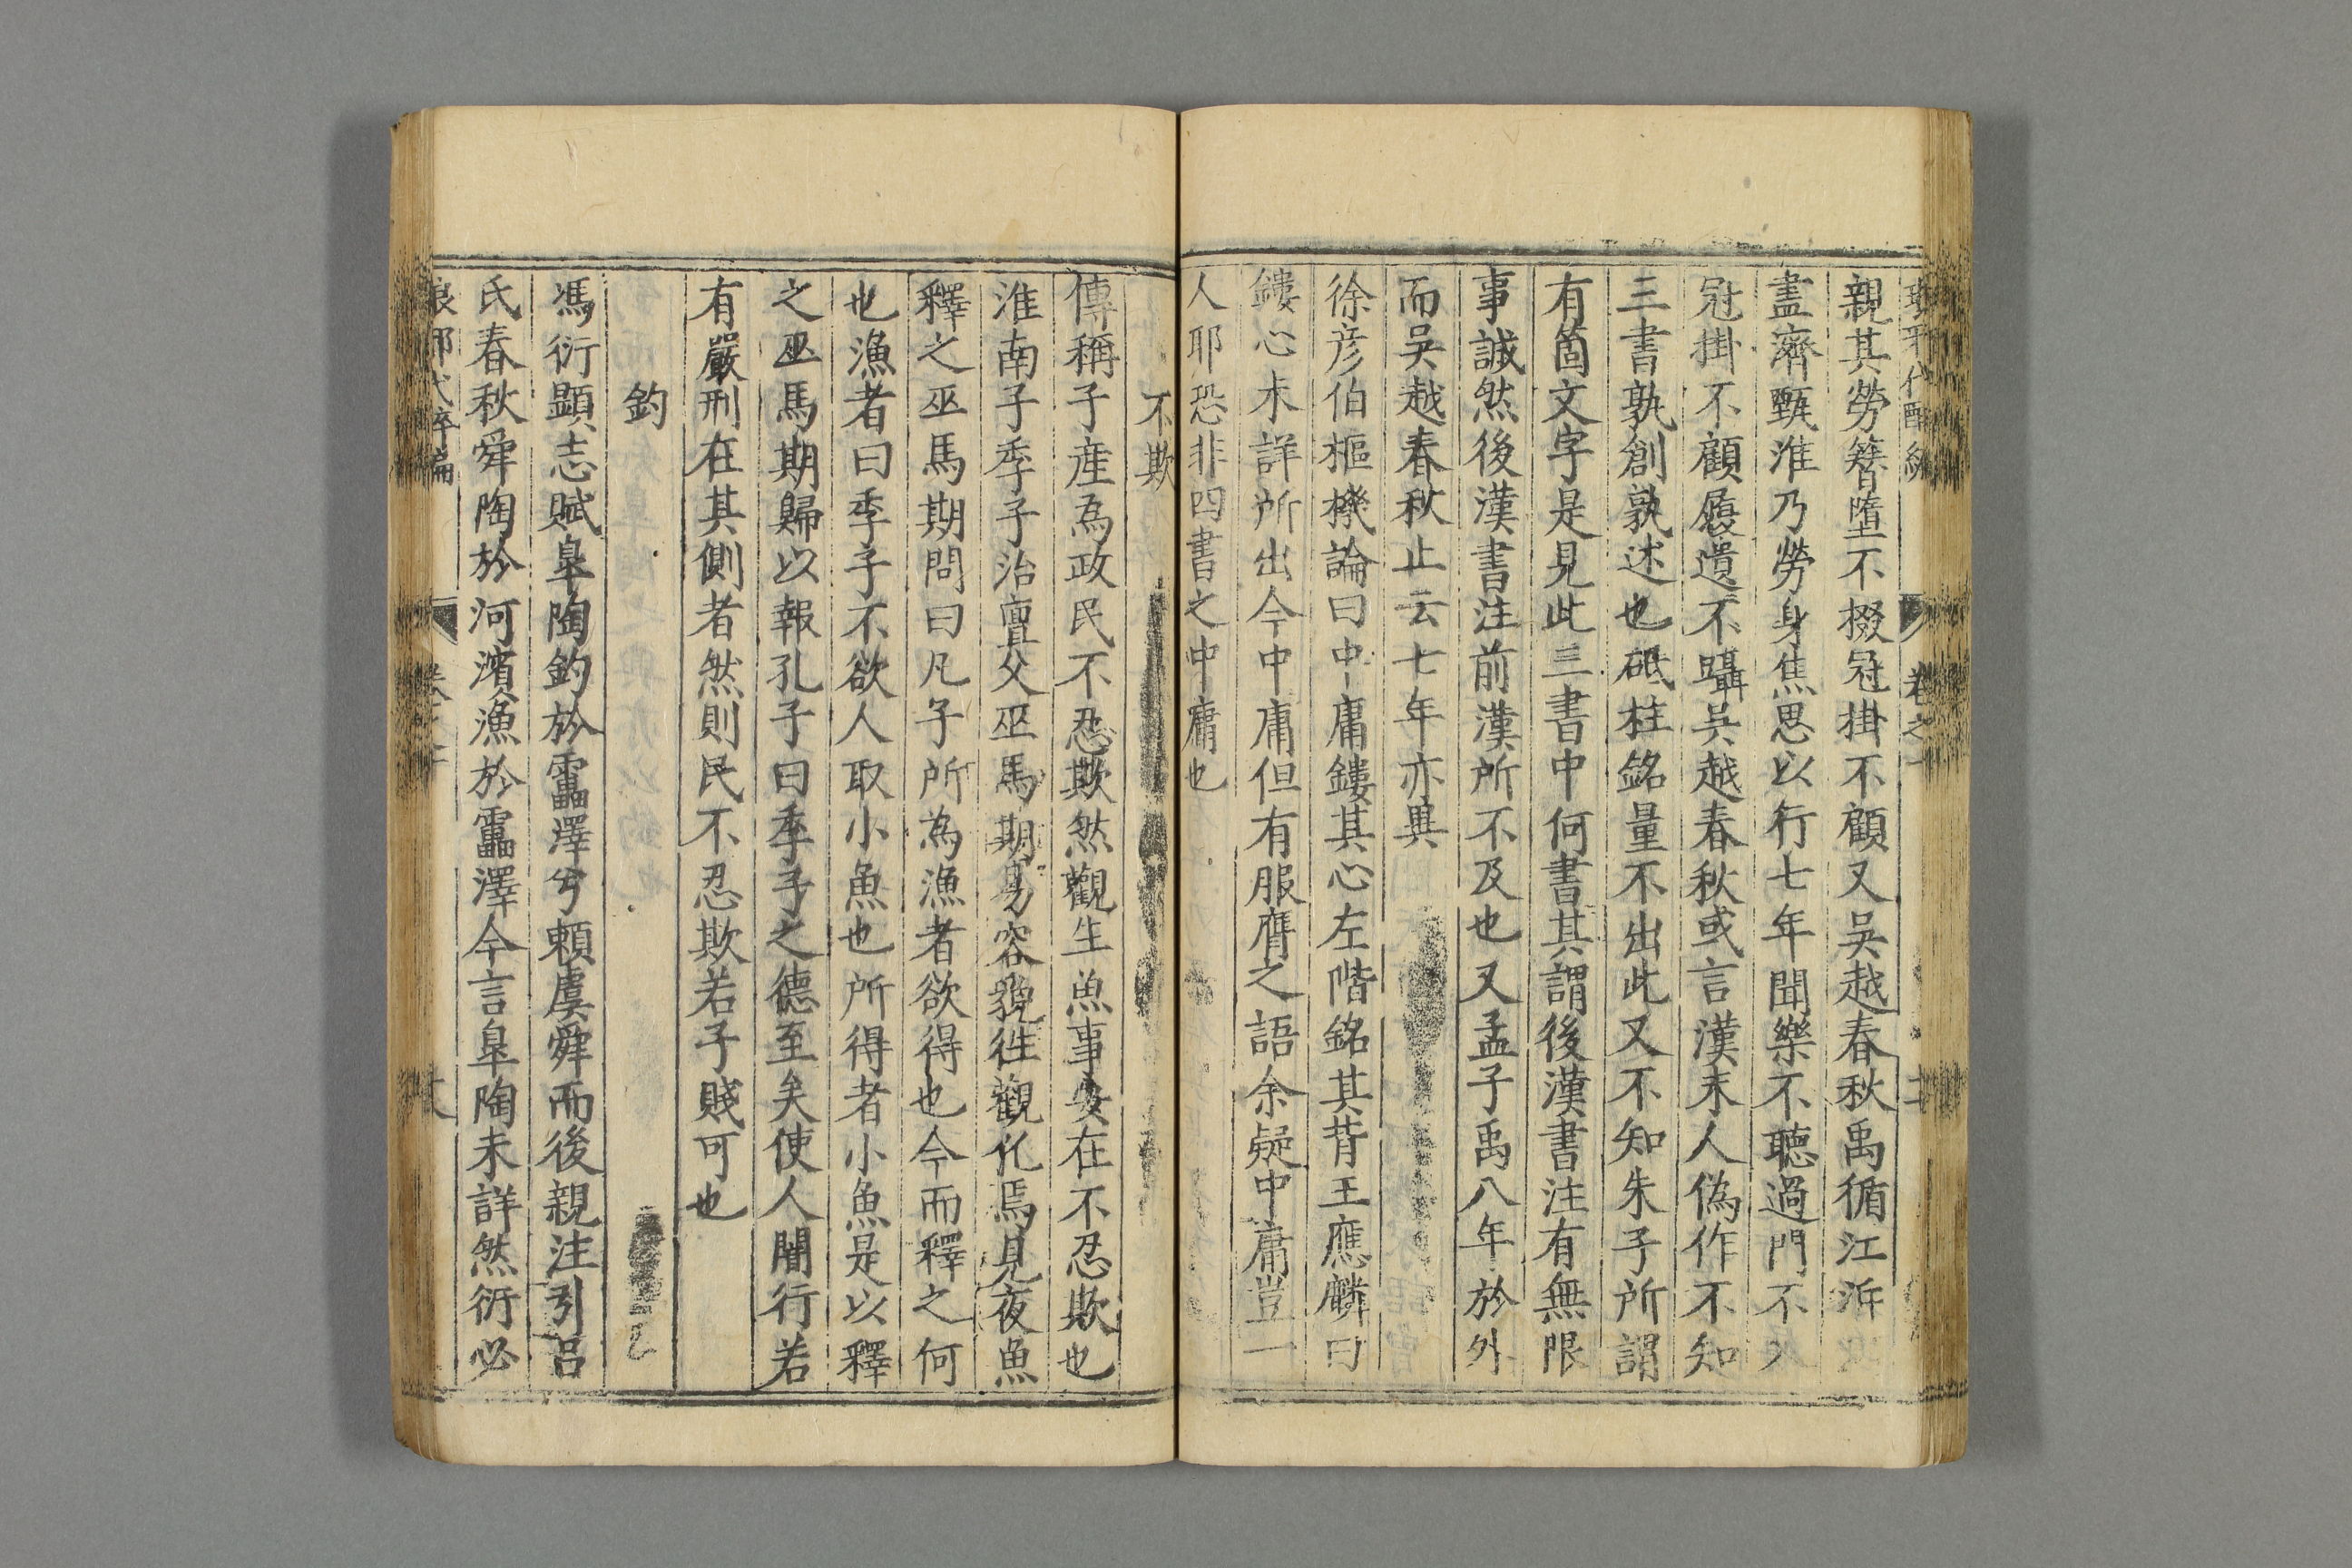 親其勞簪墮不掇冠掛不顧又吳越春秋禹循江泝
盡濟甄淮乃勞身焦思以行七年聞樂不聽過門不入
冠掛不顧履遺不躡吳越春秋或言漢末人偽作不知
三書孰創孰述也砥柱銘量不出此又不知朱子所謂
有箇文字是見此三書中何書其謂後漢書注有無限
事誠然後漢書注前漢所不及也又孟子禹八年於外
而吳越春秋止云七年亦異
徐彦伯樞機論曰中庸鏤其心左階銘其背王應麟曰
鏤心未詳所出今中庸但有服膺之語余疑中庸豈一
人耶恐非四書之中庸也
不欺
傳稱子産為政民不忍欺然觀生魚事安在不忍欺也
淮南子季子治亶父巫馬期易容貌徃觀化焉見夜魚
釋之巫馬期問曰凡子所為漁者欲得也今而釋之何
也漁者曰季子不欲人取小魚也所得者小魚是以釋
之巫馬期歸以報孔子曰季子之德至矣使人闇行若
有嚴刑在其側者然則民不忍欺若子賤可也
釣
馮衍顯志賦臯陶釣於靁澤兮頼虞舜而後親注引呂
氏春秋舜陶於河濱漁於靁澤今言臯陶未詳然衍必